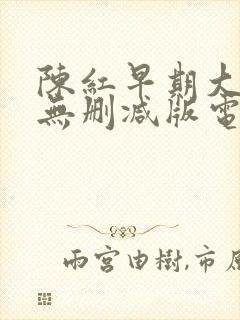 陳紅早期大
無刪減版電
雨宮由樹,市原